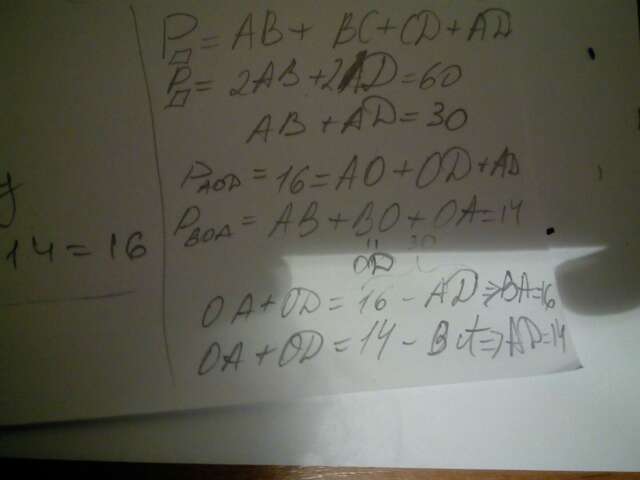 P▱ = AB + BC + CD + AD
P▱ = 2AB + 2AD = 60
AB + AD = 30
P_AOD = 16 = AO + OD + AD
P_BOA = AB + BO + OA = 14
14 = 16
OD
OA + OD = 16 - AD ⇒ BA = 16
OA + OD = 14 - BA ⇒ AD = 14